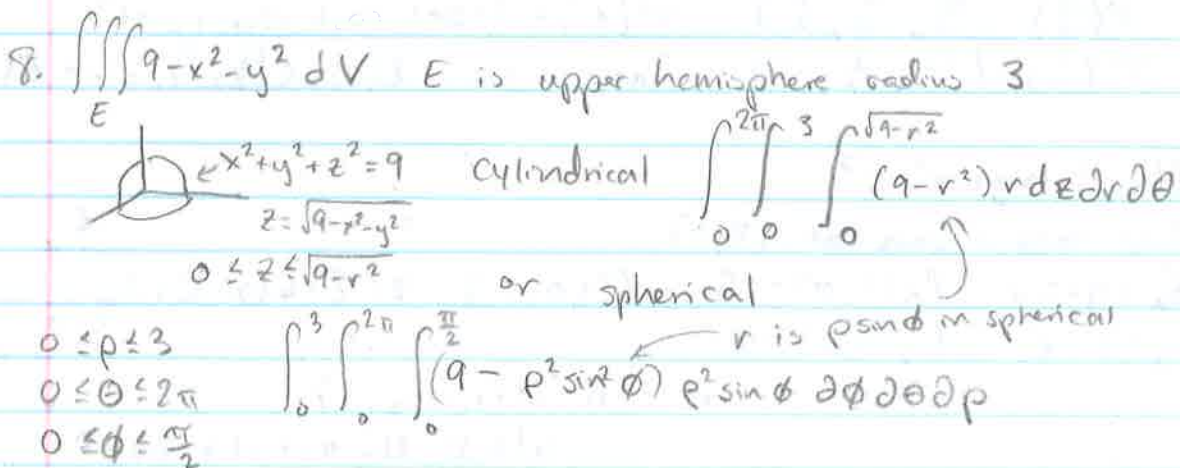 8. ∭_E 9-x²-y² dV E is upper hemisphere radius 3
x²+y²+z²=9 Cylindrical ∫_0^{2π} ∫_0^3 ∫_0^{√(9-r²)} (9-r²) r dz ∂r ∂θ
z=√(9-x²-y²)
0 ≤ z ≤ √(9-r²)
or spherical
r is ρsinϕ in spherical
0 ≤ ρ ≤ 3
0 ≤ θ ≤ 2π ∫_0^3 ∫_0^{2π} ∫_0^{π/2} (9 - ρ² sin² ϕ) ρ² sin ϕ ∂ϕ ∂θ ∂ρ
0 ≤ ϕ ≤ π/2